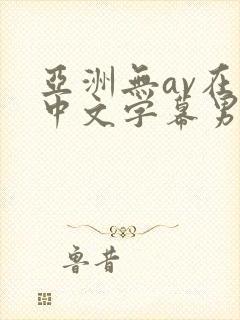 亞洲無av在
中文字幕男
魯昔